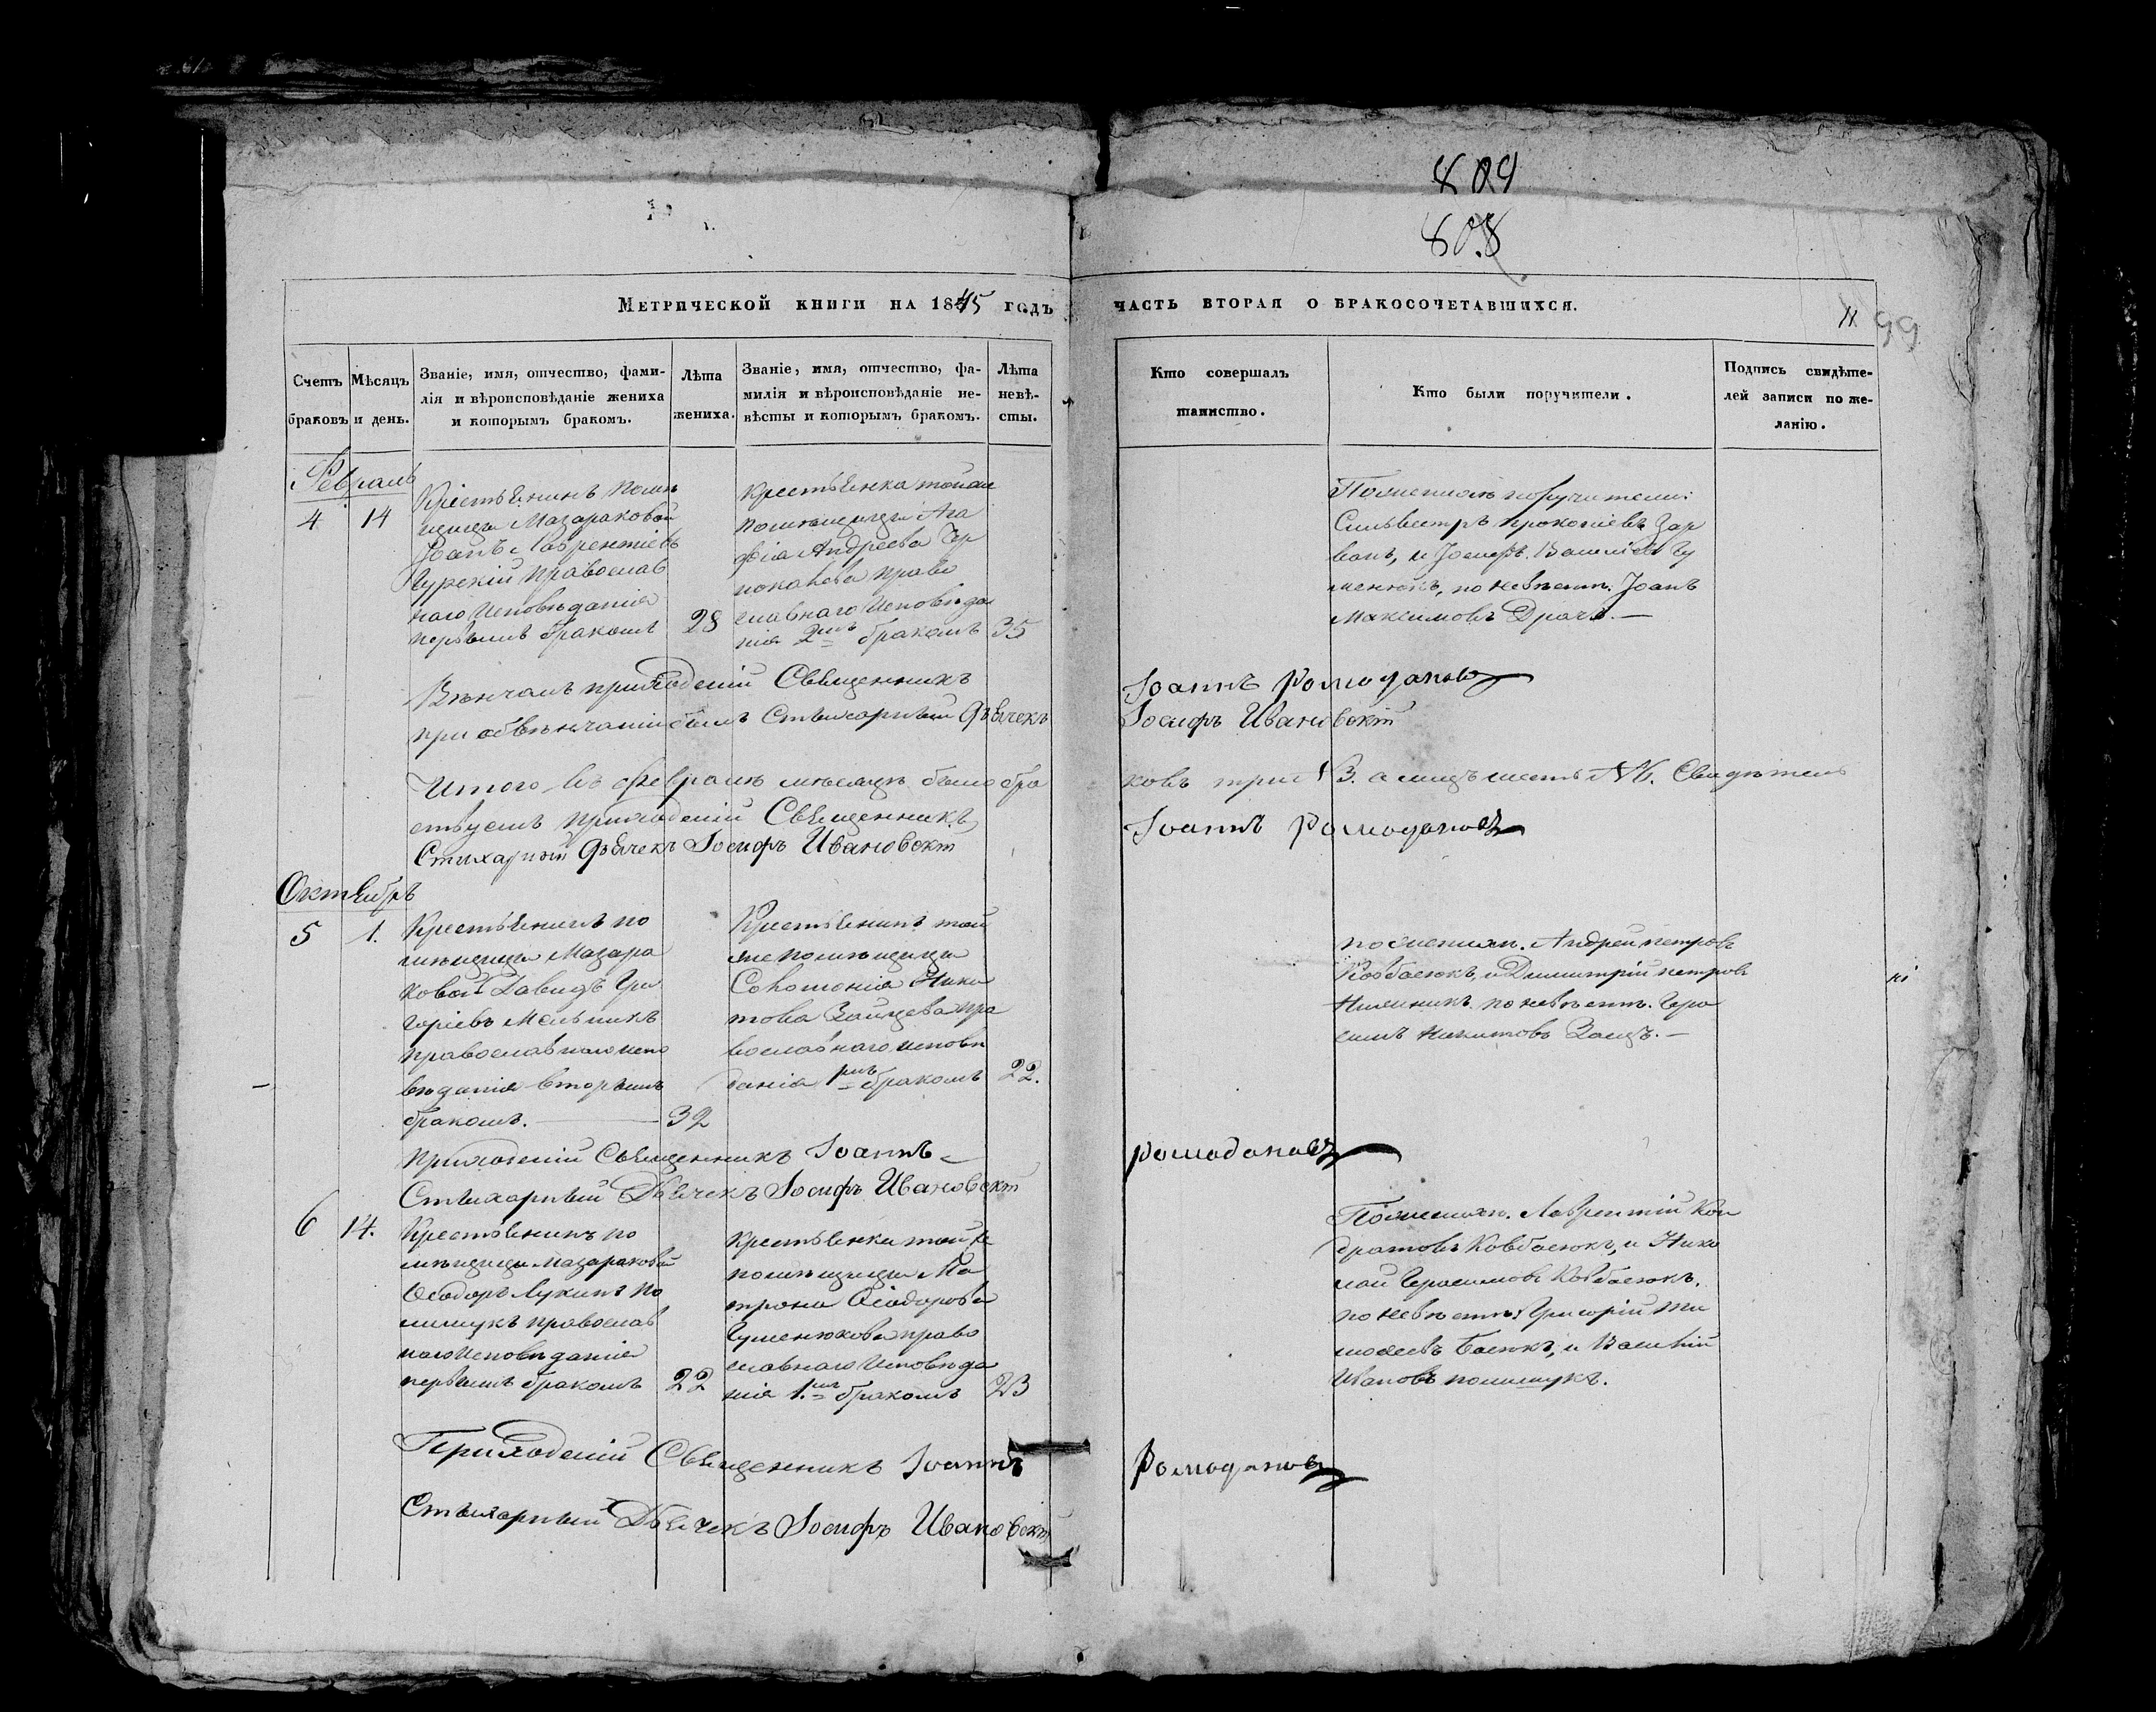 809
808
Метрической книги на 1845 годъ
часть вторая о бракосочетавшихся.
11
99
Счетъ браковъ
Мѣсяцъ и день.
Званіе, имя, отчество, фами-
лія и вѣроисповѣданіе жениха
и которымъ бракомъ.
Лѣта
жениха.
Званіе, имя, отчество, фа-
милія и вѣроисповѣданіе не-
вѣсты и которымъ бракомъ.
Лѣта
невѣ-
сты.
Кто совершалъ
таинство.
Кто были поручители.
Подпись свидѣте-
лей записи по же-
ланію.
Февраль
4
14
Крестьянинъ помѣ
щицы Мазараковой
Іоанъ Лаврентіевъ
православ
наго исповѣданія
первымъ бракомъ
28
крестьянка тойже
помѣщицы Ага
фія Андреева
право
славнаго исповѣда
нія 2мъ бракомъ
35
По женихѣ поручители:
Сильвестръ Прокопіевъ Зар
ванъ, и Іосифъ Василіевъ Гу
менюкъ, по невѣстѣ: Іоанъ
Максимовъ Драчъ.—
Вѣнчалъ приходскій Священникъ
Іоаннъ Ромодановъ
при обвѣнчаніи былъ Стихарный дьячекъ
Іосифъ Ивановскій
Итого въ февралѣ мѣсяцѣ было бра
ковъ три № 3. а лицъ шесть № 6. Свидѣтель
ствуемъ приходскій Священникъ
Іоаннъ Ромодановъ
Стихарный дьячекъ Іосифъ Ивановскій
Октябрь
5
1.
Крестьянинъ по
мѣщицы Мазара
ковой Давидъ Гри
горіевъ Мельникъ
православнаго испо
вѣданія вторымъ
бракомъ.
32
Крестьянинъ той
же помѣщицы
Соломонія Ники
това Зайцева пра
вославнаго исповѣ
данія 1мъ бракомъ
22.
по женихѣ. Андрей Петровъ
Ковбасюкъ, и Димитрій Петровъ
по невѣстѣ. Гера
симъ Никитовъ Заецъ.—
Приходскій Священникъ Іоаннъ
Ромодановъ
Стихарный Дьячекъ Іосифъ Ивановскій
6
14.
Крестьянинъ по
мѣщицы Мазараковой
Ѳеодоръ Лукинъ По
лищукъ православ
наго исповѣданія
первымъ бракомъ
22
Крестьянка той же
помѣщицы Ма
трона Ѳеодорова
Гуменюкова право
славнаго исповѣда
нія 1.мъ бракомъ
23
По женихѣ. Лаврентій Кон
дратовъ Ковбасюкъ, и Нико
лай Герасимовъ Ковбасюкъ.
по невѣстѣ: Григорій Ти
моѳеевъ Басюкъ, и Василій
Ивановъ полищукъ.
Приходскій Священникъ Іоаннъ
Ромодановъ
Стихарный Дьячекъ Іосифъ Ивановскій